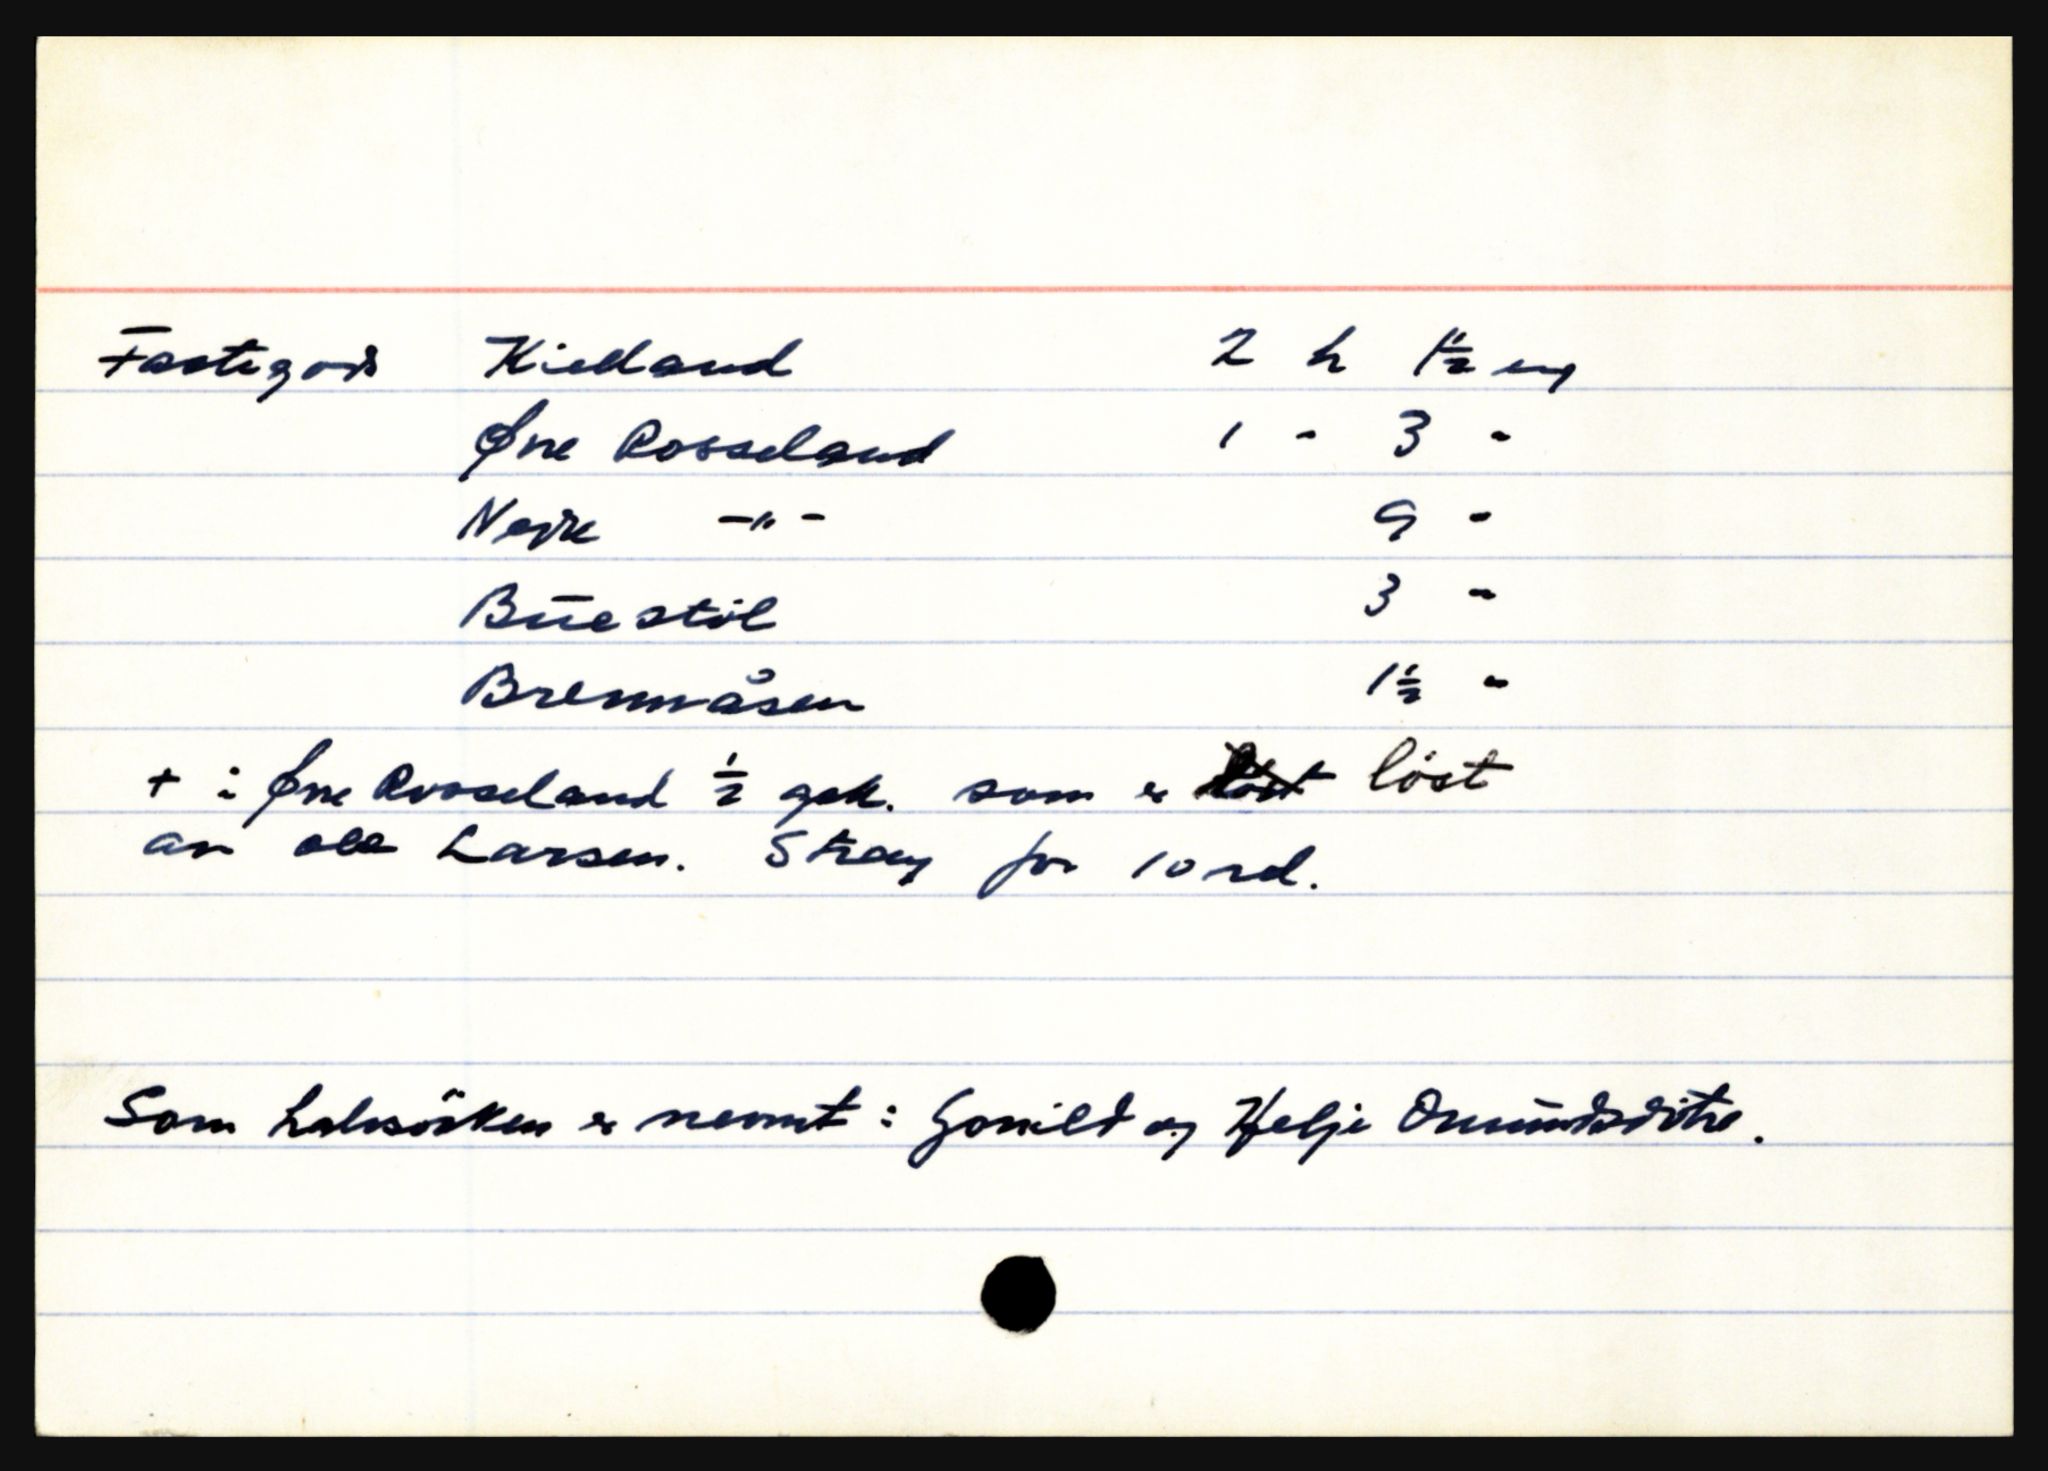 Fastigods Kielland 2 h 1½ eng
Øvre Rosseland 1 - 3 -
Nedre -"- 9 -
Buestöl 3 -
Brennåsen 1½ -
+ i Øvre Rosseland ½ gsk. som er löst löst
av Ole Larsen. Stray for 10 rd.
Som halvsösken er nevnt : Gonild og Helje Onundsdötre.